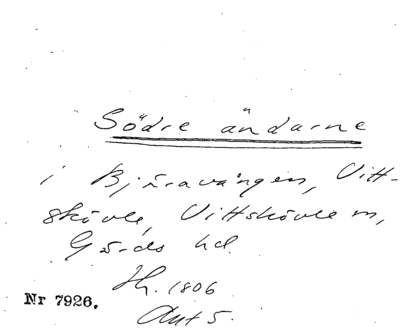 Södre ändarne
i Bjäravången, Vitt-
skövle, Vittskövle sn,
Gärds hd.
Hh. 1806
Akt 5.
Nr 7926.